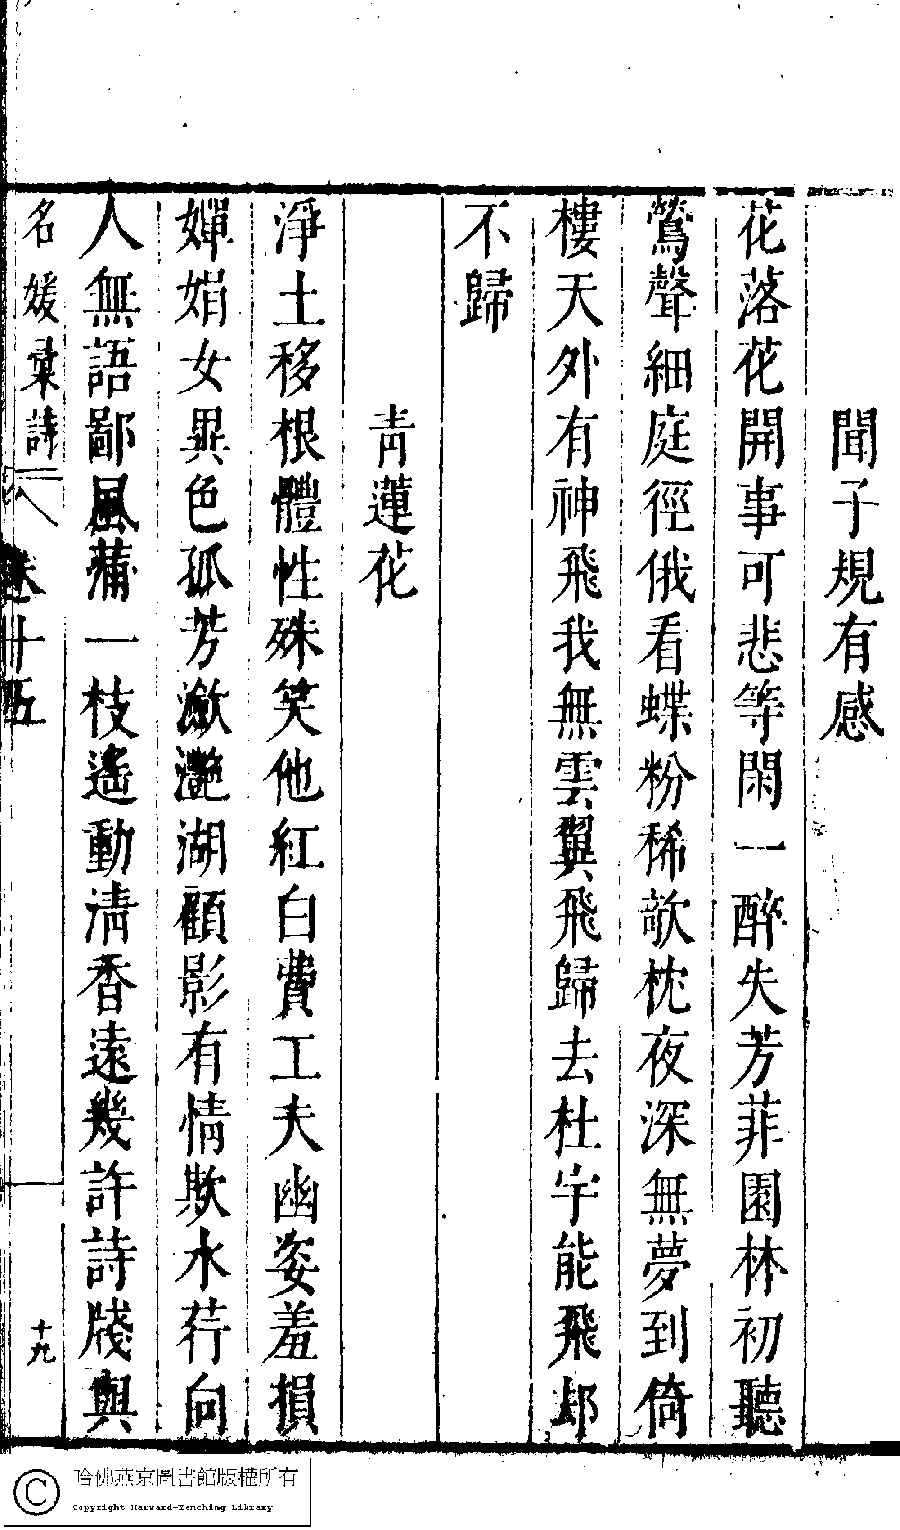 聞子規有感
花落花開事可悲等閑一醉失芳菲園林初聽
鶯聲細庭徑俄看蝶粉稀欹枕夜深無夢到倚
樓天外有神飛我無雲翼飛歸去杜宇能飛却
不歸
青蓮花
淨土移根體性殊笑他紅白費工夫幽姿羞損
嬋娟女異色孤芳瀲灧湖顧影有情欺水荇向
人無語鄙風蒲一枝遙動清香遠幾許詩牋與
名媛彙詩
卷廿五
十九
哈佛燕京圖書館版權所有
Copyright Harvard-Yenching Library